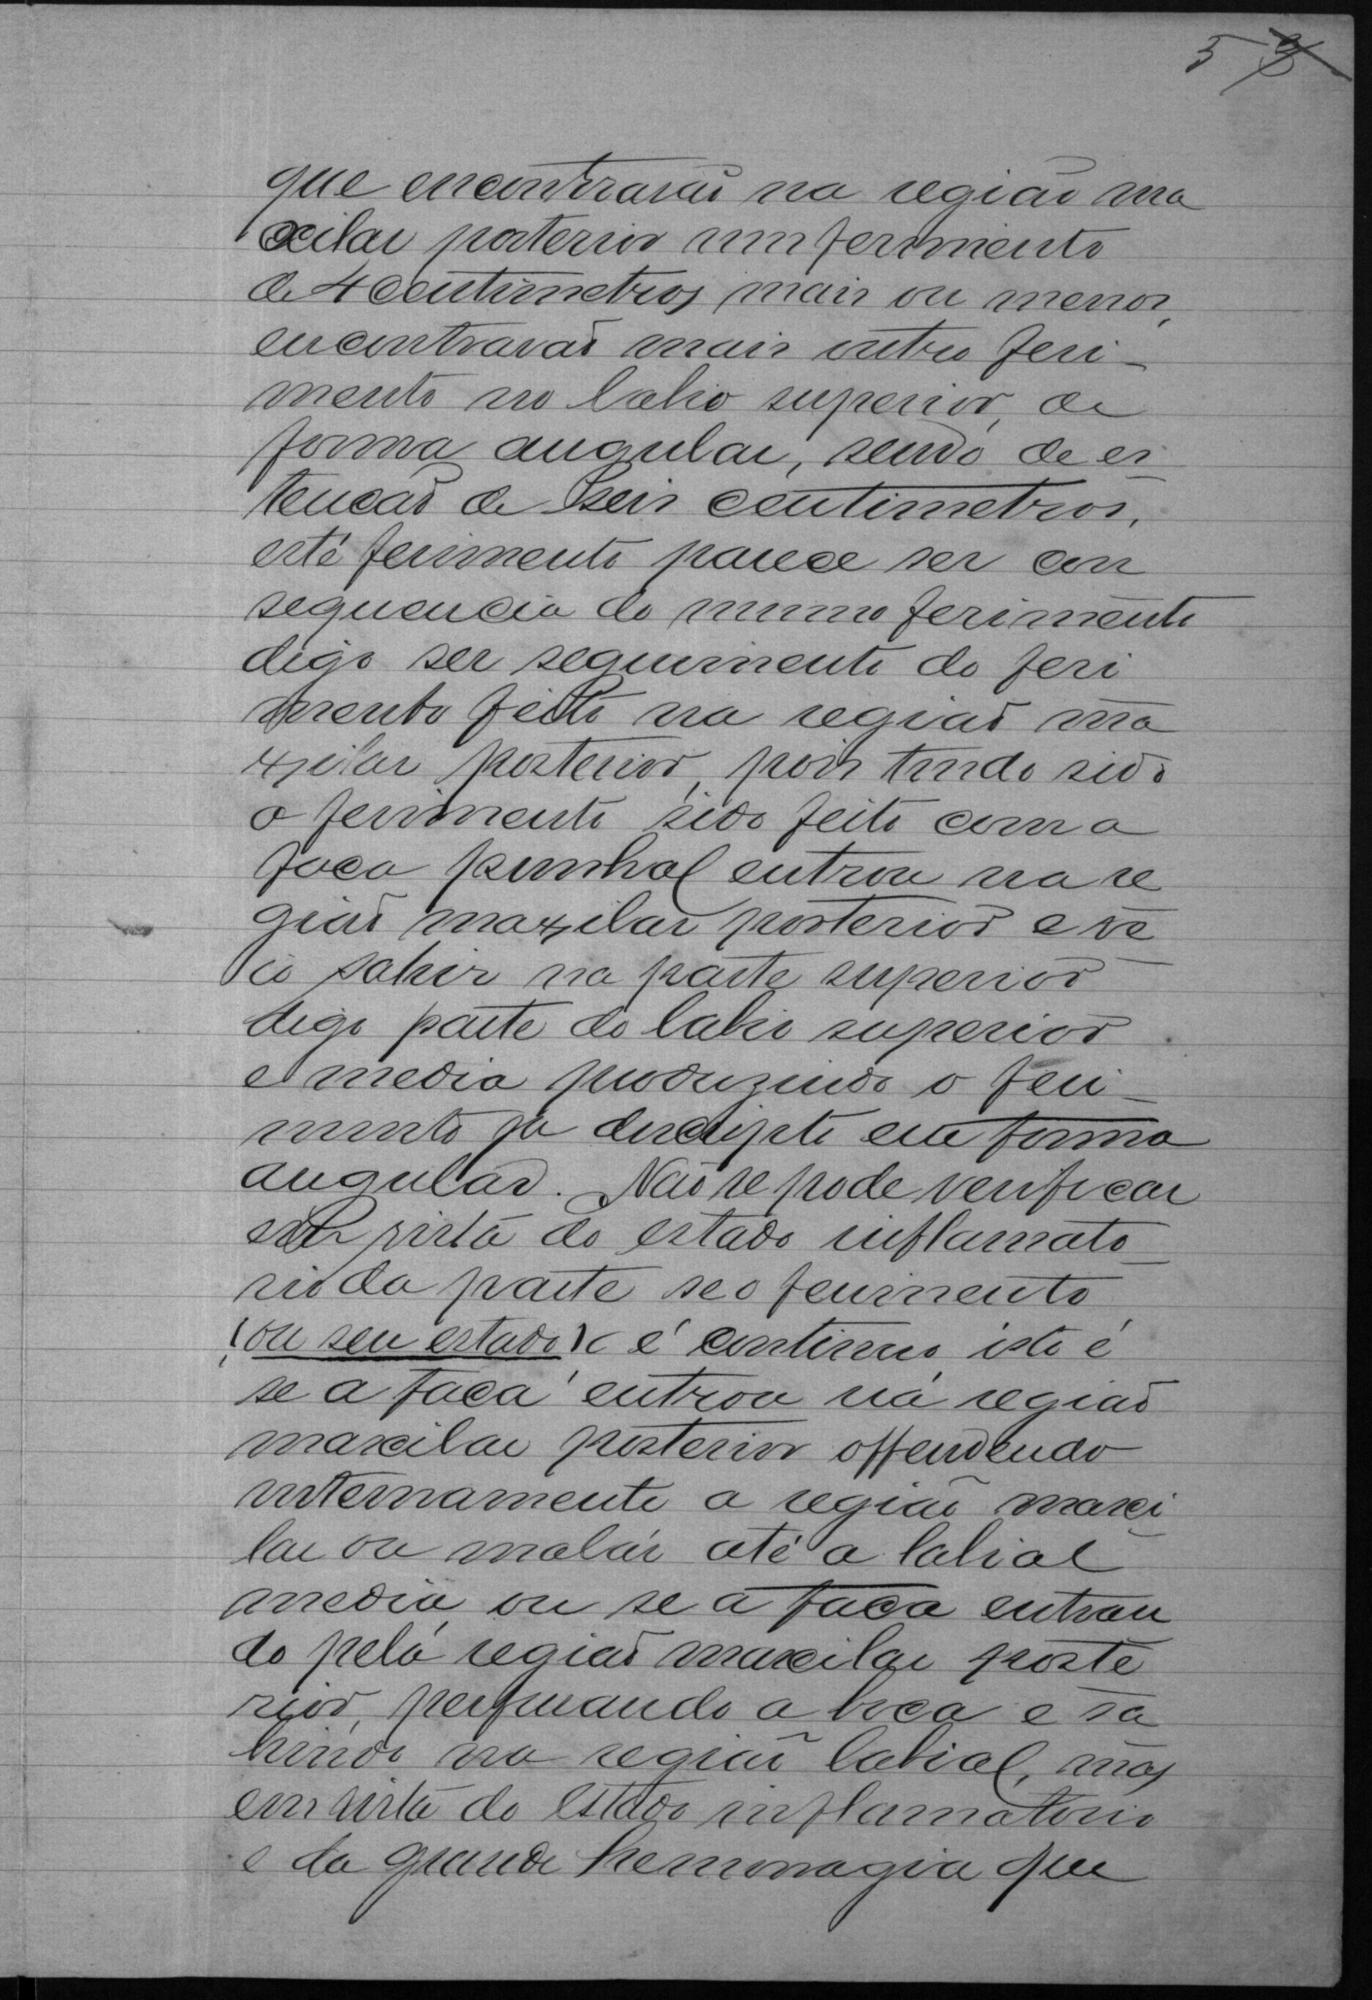 5 3
que encontrarão na região ma
xilar posterior um ferimento
de 4 centimetros mais ou menos,
encontrarão mais outro feri-
mento no labio superior, de
forma angular, sendo de es
tencão de seis centimetros,
este ferimento parece ser con
sequencia do mesmo ferimento
digo ser seguimento do feri
mento feito na região ma
xilar posterior, pois tendo sido
o ferimento sido feito com a
faca punhal entrou na re
gião maxilar posterior e ve
io sahir na parte superior
digo parte do labio superior
e media produzindo o feri-
mento ja descripto em forma
angular. Não se pode verificar
em vista do estado inflamato
rio da parte se o ferimento
(ou seu estado) é continuo isto é
se a faca entrou na região
maxilar posterior offendendo
internamente a região maxi
lar ou malar até a labial
media, ou se a faca entran
do pela região maxilar poste
rior, perfurando a boca e sa
hindo na região labial, mas
em vista do estado inflamatorio
e da grande hemorragia que